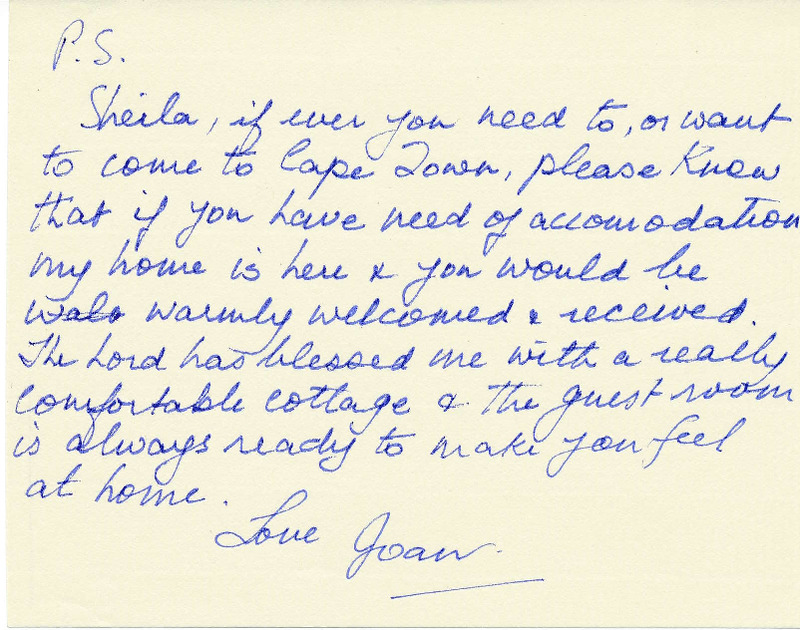 P.S.
Sheila, if ever you need to, or want
to come to Cape Town, please know
that if you have need of accomodation
my home is here & you would be
warmly welcomed & received.
The Lord has blessed me with a really
comfortable cottage & the guest room
is always ready to make you feel
at home.
Love Joan